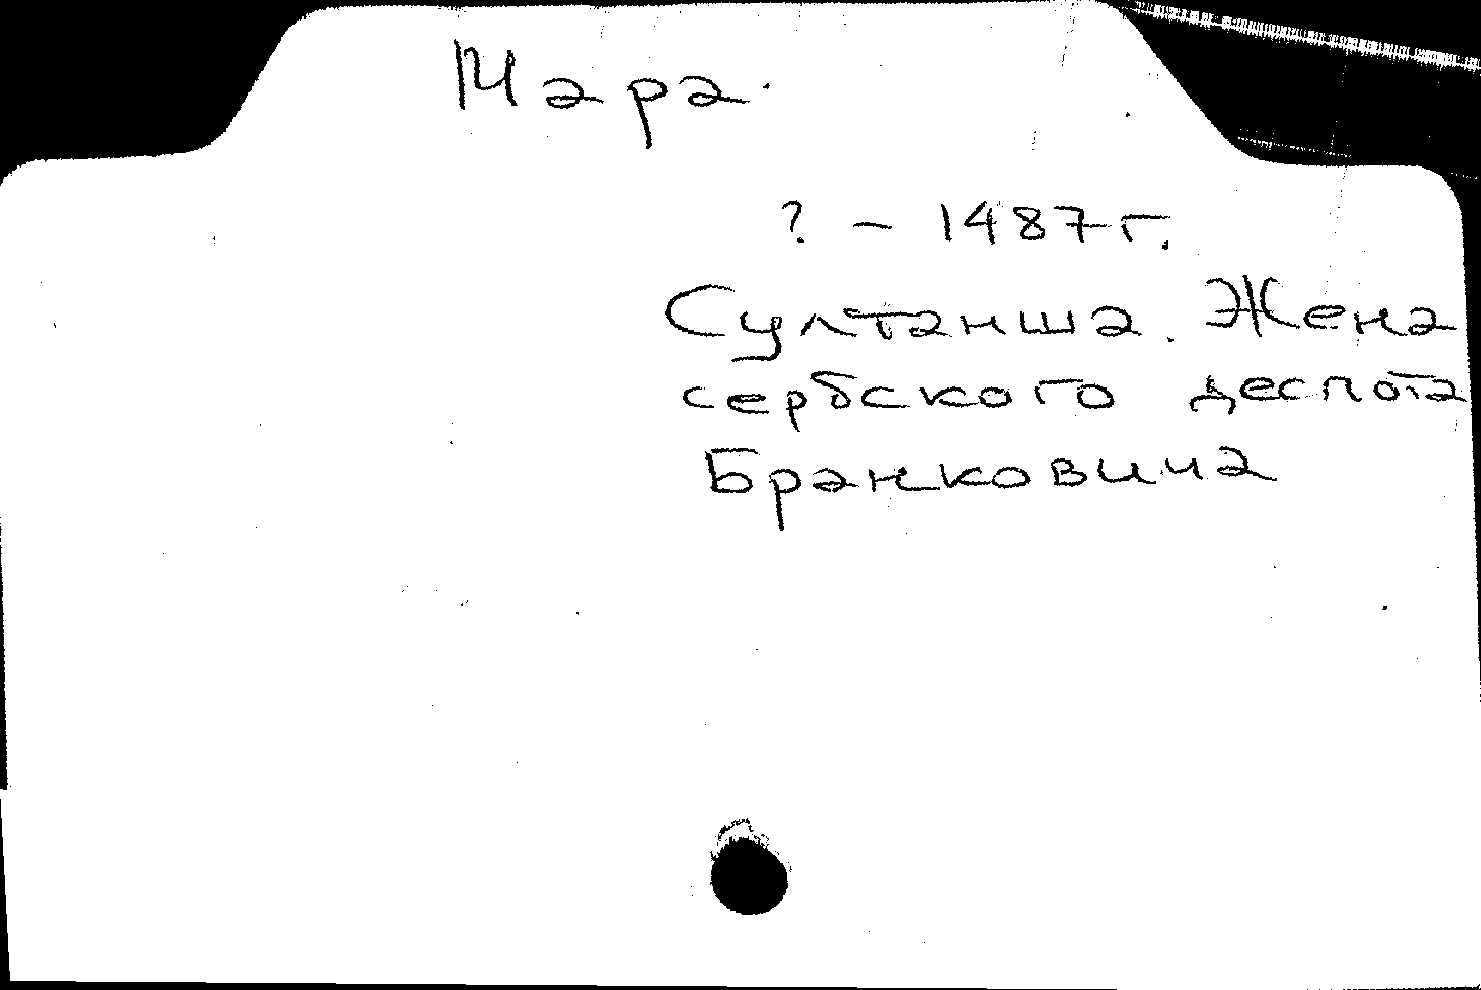 Мара.
? – 1487 г.
Султанша. Жена
сербского деспота
Бранковича